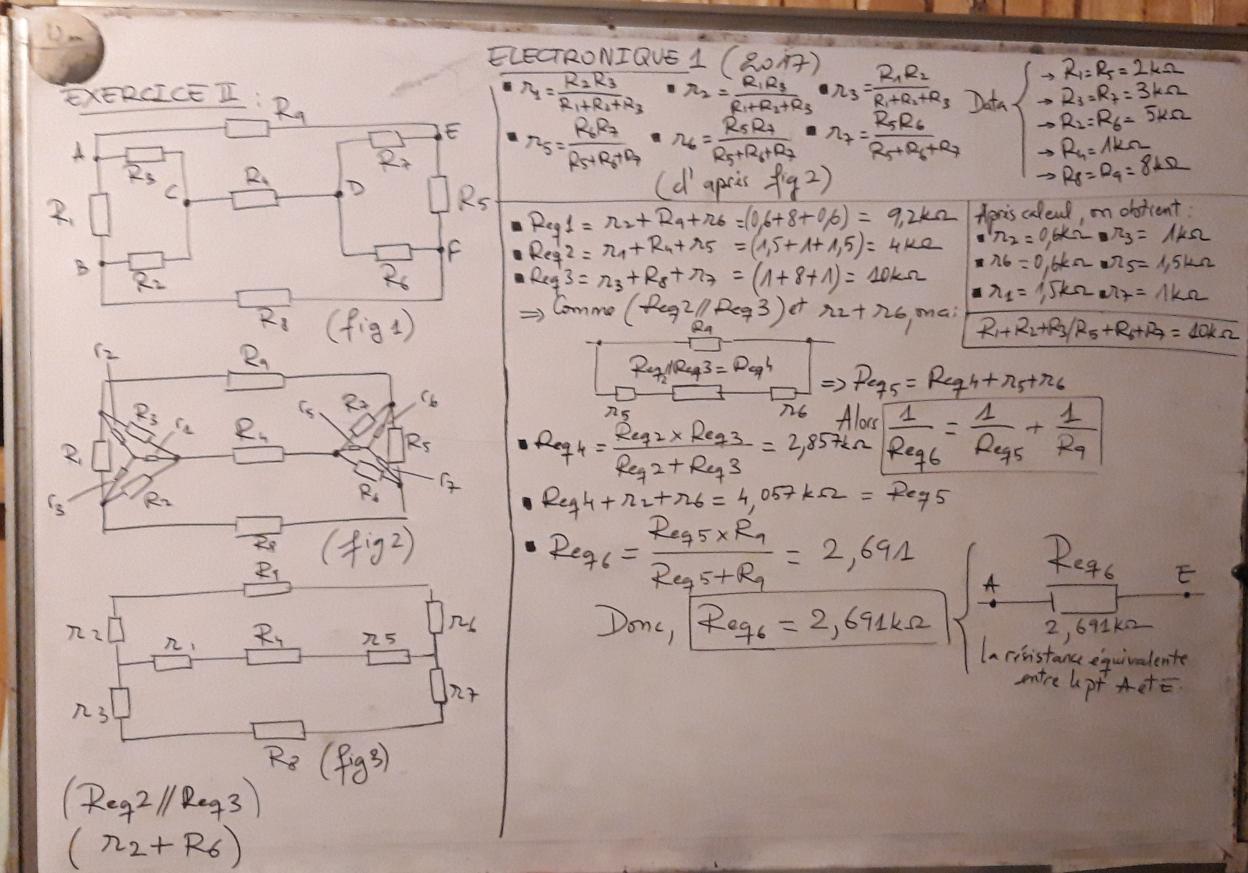 ELECTRONIQUE 1 (2017)
EXERCICE II :
R9
A
E
R3
R7
C
R4
D
R1
R5
B
R2
R6
F
R8
(fig1)
r2
R9
R3
r1
r5
R7
r6
R1
R4
R5
r3
R2
R6
r7
R8
(fig2)
R9
r2
r6
r1
R4
r5
r3
r7
R8
(fig3)
(Req2//Req3)
(r2+R6)
▪ r1 = R2R3 / R1+R2+R3 ▪ r2 = R1R3 / R1+R2+R3 ▪ r3 = R1R2 / R1+R2+R3
▪ r5 = R6R7 / R5+R6+R7 ▪ r6 = R5R7 / R5+R6+R7 ▪ r7 = R5R6 / R5+R6+R7
(d'après fig2)
Data
→ R1=R5=2kΩ
→ R3=R7=3kΩ
→ R2=R6=5kΩ
→ R4=1kΩ
→ R8=R9=8kΩ
▪ Req1 = r2+R9+r6 =(0,6+8+0,6) = 9,2kΩ
▪ Req2 = r1+R4+r5 = (1,5+1+1,5)= 4kΩ
▪ Req3 = r3+R8+r7 = (1+8+1) = 10kΩ
⇒ Comme (Req2//Req3) et r2+r6, on a:
Après calcul, on obtient :
▪ r2=0,6kΩ ▪ r3= 1kΩ
▪ r6=0,6kΩ ▪ r5=1,5kΩ
▪ r1=1,5kΩ ▪ r7=1kΩ
R1+R2+R3/R5+R6+R7=10kΩ
R9
Req2//Req3=Req4
r5
r6
⇒ Req5 = Req4+r5+r6
Alors 1/Req6 = 1/Req5 + 1/R9
▪ Req4 = Req2 x Req3 / Req2 + Req3 = 2,857kΩ
▪ Req4+r2+r6 = 4,057kΩ = Req5
▪ Req6 = Req5 x R9 / Req5+R9 = 2,691
Donc, Req6 = 2,691kΩ
Req6
A
E
2,691kΩ
la résistance équivalente
entre le pt A et E.